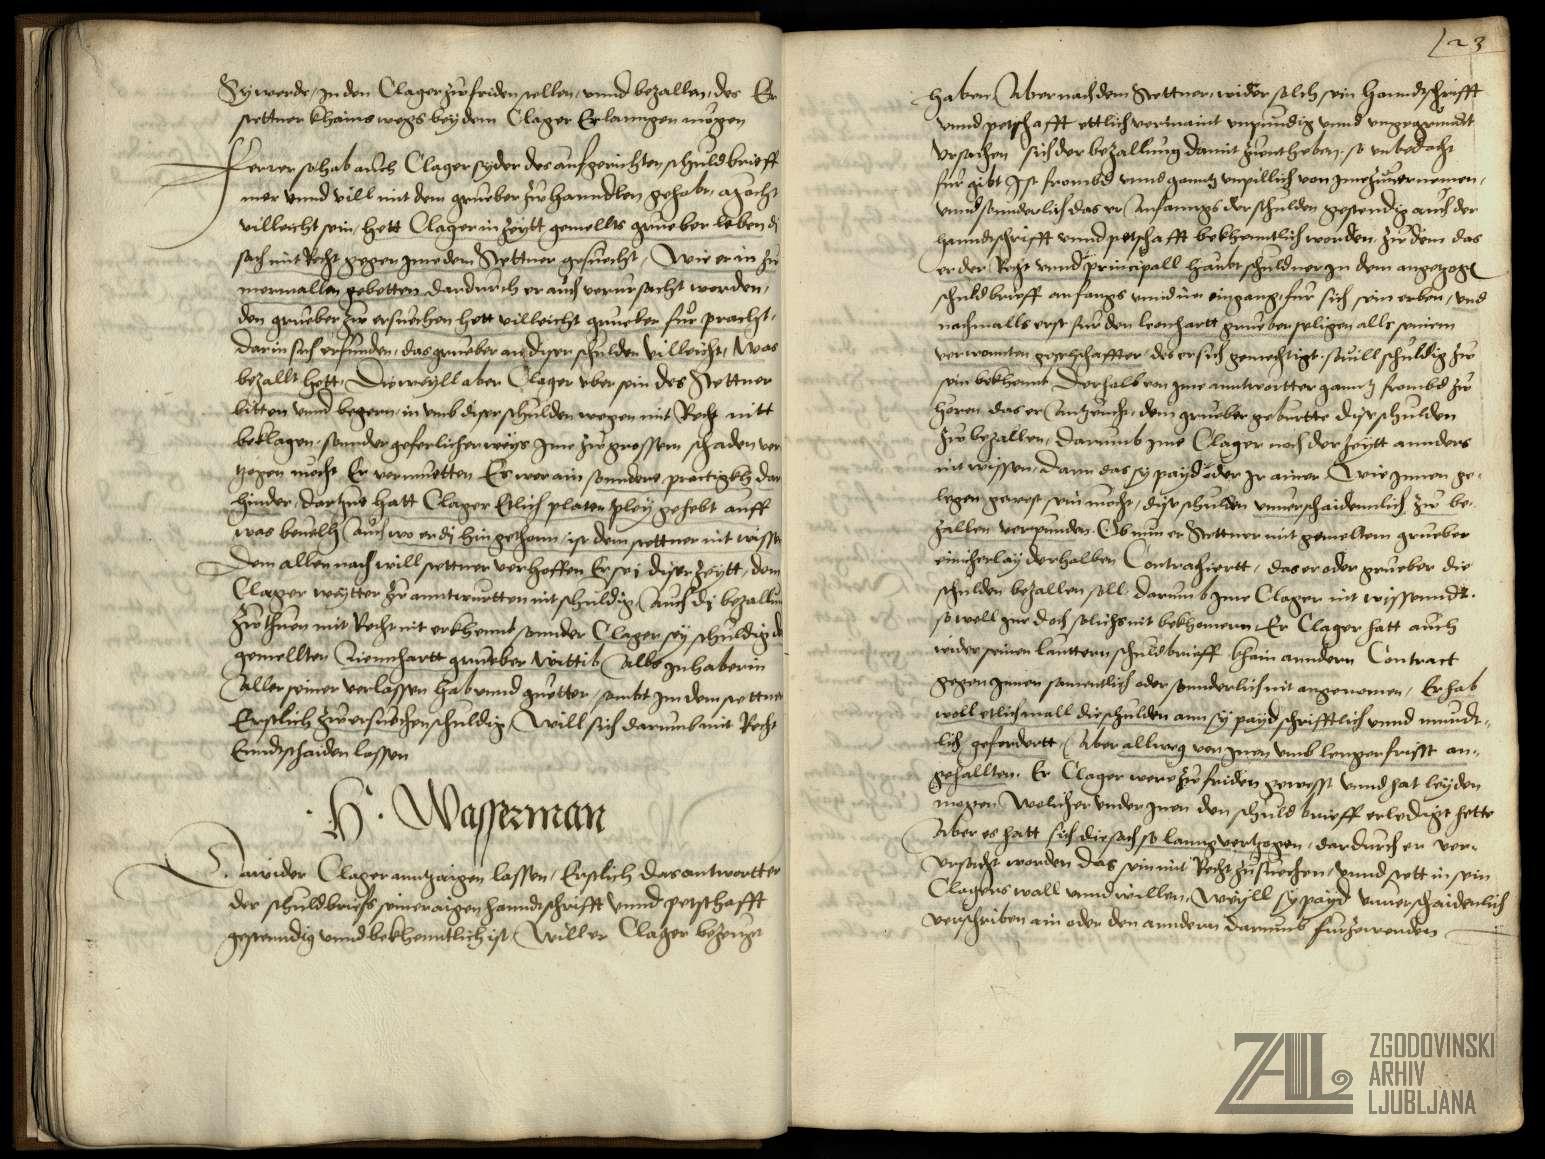 Sy werde, In den Clager zw friden stellen, vnnd bezallen, des Er
stettner khains wegs bey dem Clager Erlanngen mogen
Ferrer so hab auch Clager syder des aufgerichten schuldbrieff
mer vnnd vill mit dem grueber zw hanndlen gehabt,
villeicht sein, hett Clager in Zeytt gemellts grueber leben di
sach mit Recht gegen Ime dem Stettner gesuecht, Wie er in zu
mermallen gebetten dardurch er auch verursacht worden,
den grueber zw ersuechen hett villeicht grueber fur pracht,
darin sich erfunden, das grueber an diser schulden villeicht, Was
bezallt hett, Dieweyll aber Clager vber sein des Stettner
bitten vnnd begern, in vmb diser schulden wegen mit Recht nitt
beklagen, sonnder geferlicher weys Ime zw grossem schaden ver
tzogen mocht Er vermuetten Es wer ain sonndere practigkh dar
hinder, dartzue hatt Clager Etlich platen pley gehebt auff
was beuelh Auch wo er dj hin gethann, ist dem stettner nit wissen
Dem allen nach will stettner verhoffen Er sei diser Zeytt, dem
Clager weytter zw anntwurtten nit schuldig Auch dj bezallung
zw thuen mit Recht nit erkhennt sonnder Clager sey schuldig de
gemellten Liennhartt grueber Wittib Alls Inhaberin
Aller seiner verlassen hab vnnd guetter, sambt Im dem stettner
Erstlich zw ersuechen schuldig, Will sich darumb mit Recht
Enndtschaiden lassen
H. Wasserman
Dawider Clager anntzaigen lassen, Erstlich das antwortter
der schuldbriefs seiner aigen hanndtschrifft vnnd petschafft
gestenndig vnnd bekhenntlich ist, Will er Clager bezeugt
123
haben Aber nach dem Stettner, wider solch sein Hanndtschrifft
vnnd petschafft ettlich vermaint vnpundig vnnd vngegrundt
Vrsachen sich der bezallung damit zuentheben, so vnbedacht
fur gibt Ist frombd vnnd ganntz vnpillich von Ime zuuernemen,
vnnd sonnderlich das er Anfanngs der schulden gestendig auch der
hanndtschrifft vnnd petschafft bekhenntlich worden, zw dem das
er der Recht vnnd principall haubt schuldner In dem angetzogen
schuldbrieff anfangs vnnd im eingang, fur sich sein erben, vnd
nachmalls erst fur den leonhartt grueber seligen alls seinem
verwonnten geselschaffter, des er sich gemechtigt, souill schuldig zw
sein bekhennt Derhalb von Ime anntwortter ganntz frombd zw
horen, das er Antzeucht, dem grueber geburtte dise schulden
zw bezallen, Darumb Ime Clager noch der Zeytt annders
nit wissen, dann das sy payd oder Ir ainer Wie Innen ge-
legen gewest sein mocht, dise schulden vnuerschaidennlich zw be-
zallen verpunden. Ob nun er Stettner mit gemeltem grueber
ainicherlay derhalben Contrahiertt, das er oder grueber die
schulden bezallen soll darumb Ime Clager nit wissenndt.
so woll Ine doch solichs nit bekhomern, Er Clager hatt auch
wider seinen lauttern schuldbrieff khain anndern Contract
gegen Innen samentlich oder sonnderlich nit angenomen, Er hab
woll etlichmall die schulden ann sy payd schrifftlich vnnd mundt-
lich gefordertt, Aber allweg von Inen vmb lenger frisst an-
gehallten. Er Clager were zw friden gewesst vnnd hat leyden
mogen Welicher vnder Inen den schuldbrieff erledigt hette
Aber es hatt sich die sach so lanng vertzogen, dardurch er ver-
vrsacht worden das sein mit Recht zu suechen, vnnd stett in sein
Clagers wall vnnd willen, Weyll sy payd vnuerschaidenlich
verschriben ain oder den anndern darumb furzewenden
ZGODOVINSKI
ARHIV
LJUBLJANA